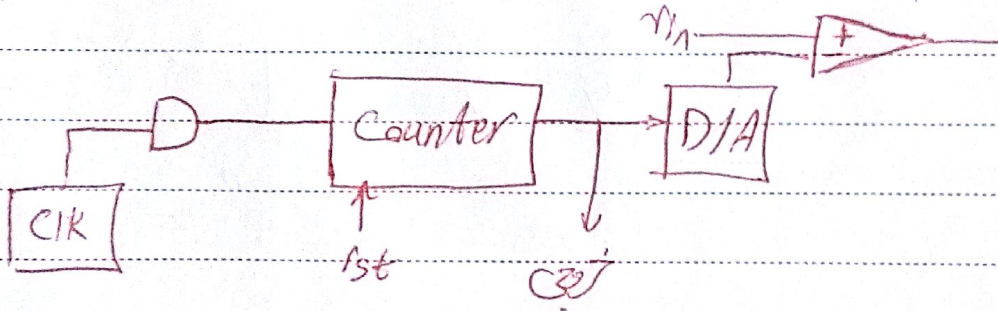 Vin
+
Counter
D/A
Clk
rst